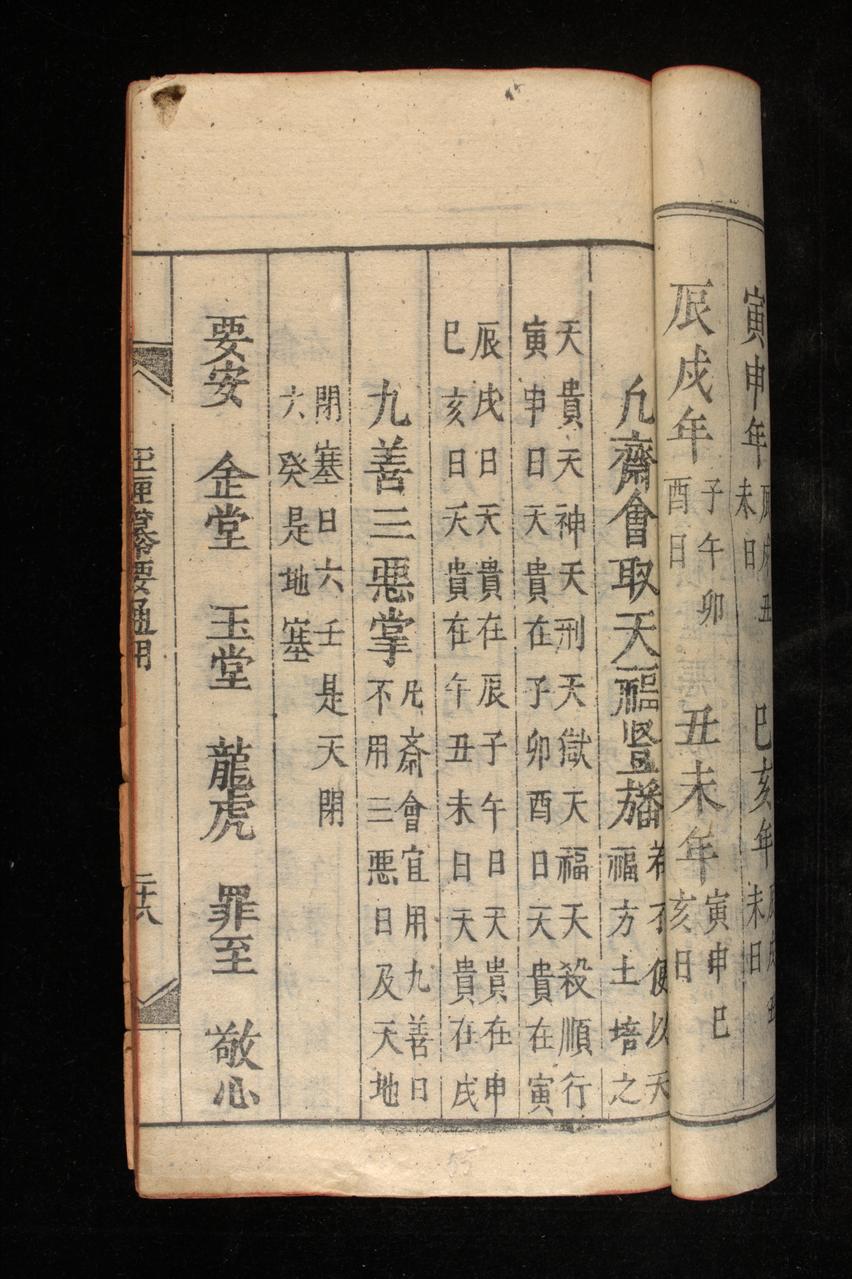 寅申年 辰戌丑未日 巳亥年 辰戌丑未日
辰戌年 子午卯酉日 丑未年 寅申巳亥日
凢齋會取天福竪旛 若不便以天福方土培之
天貴天神天刑天獄天福天殺順行
寅申日天貴在子卯酉日天貴在寅
辰戌日天貴在辰子午日天貴在申
巳亥日天貴在午丑未日天貴在戌
九善三惡掌 凢齋會宜用九善日不用三惡日及天地
閉塞日六壬是天閉
六癸是地塞
要安 金堂 玉堂 龍虎 罪至 敬心
纂要通用
二十八